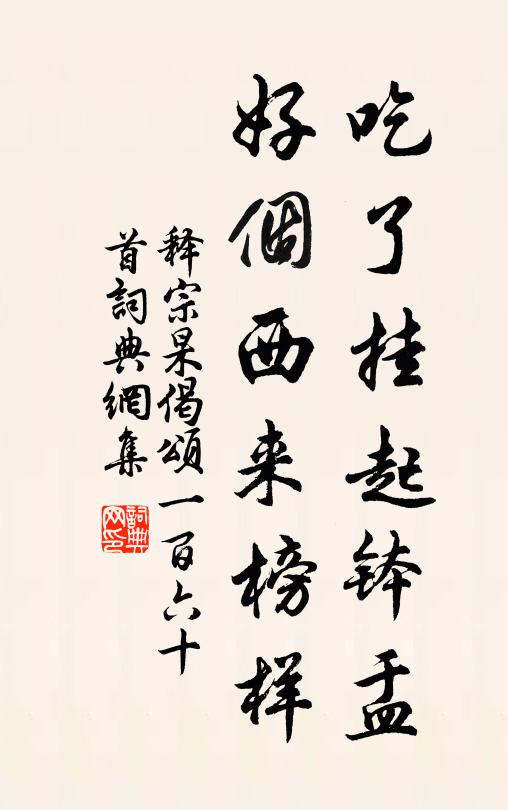 吃了挂起钵盂
好個西来榜样
释宗杲偈頌一百六十
首詞典網集
詞典
网印